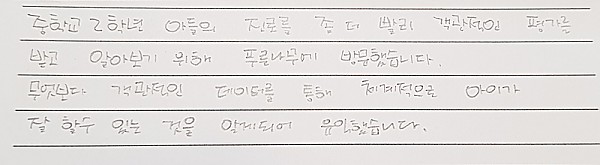 중학교 2학년 아들의 진로를 좀 더 빨리 객관적인 평가를
받고 알아보기 위해 푸른나무에 방문했습니다.
무엇보다 객관적인 데이터를 통해 체계적으로 아이가
잘 할수 있는 것을 알게되어 유익했습니다.